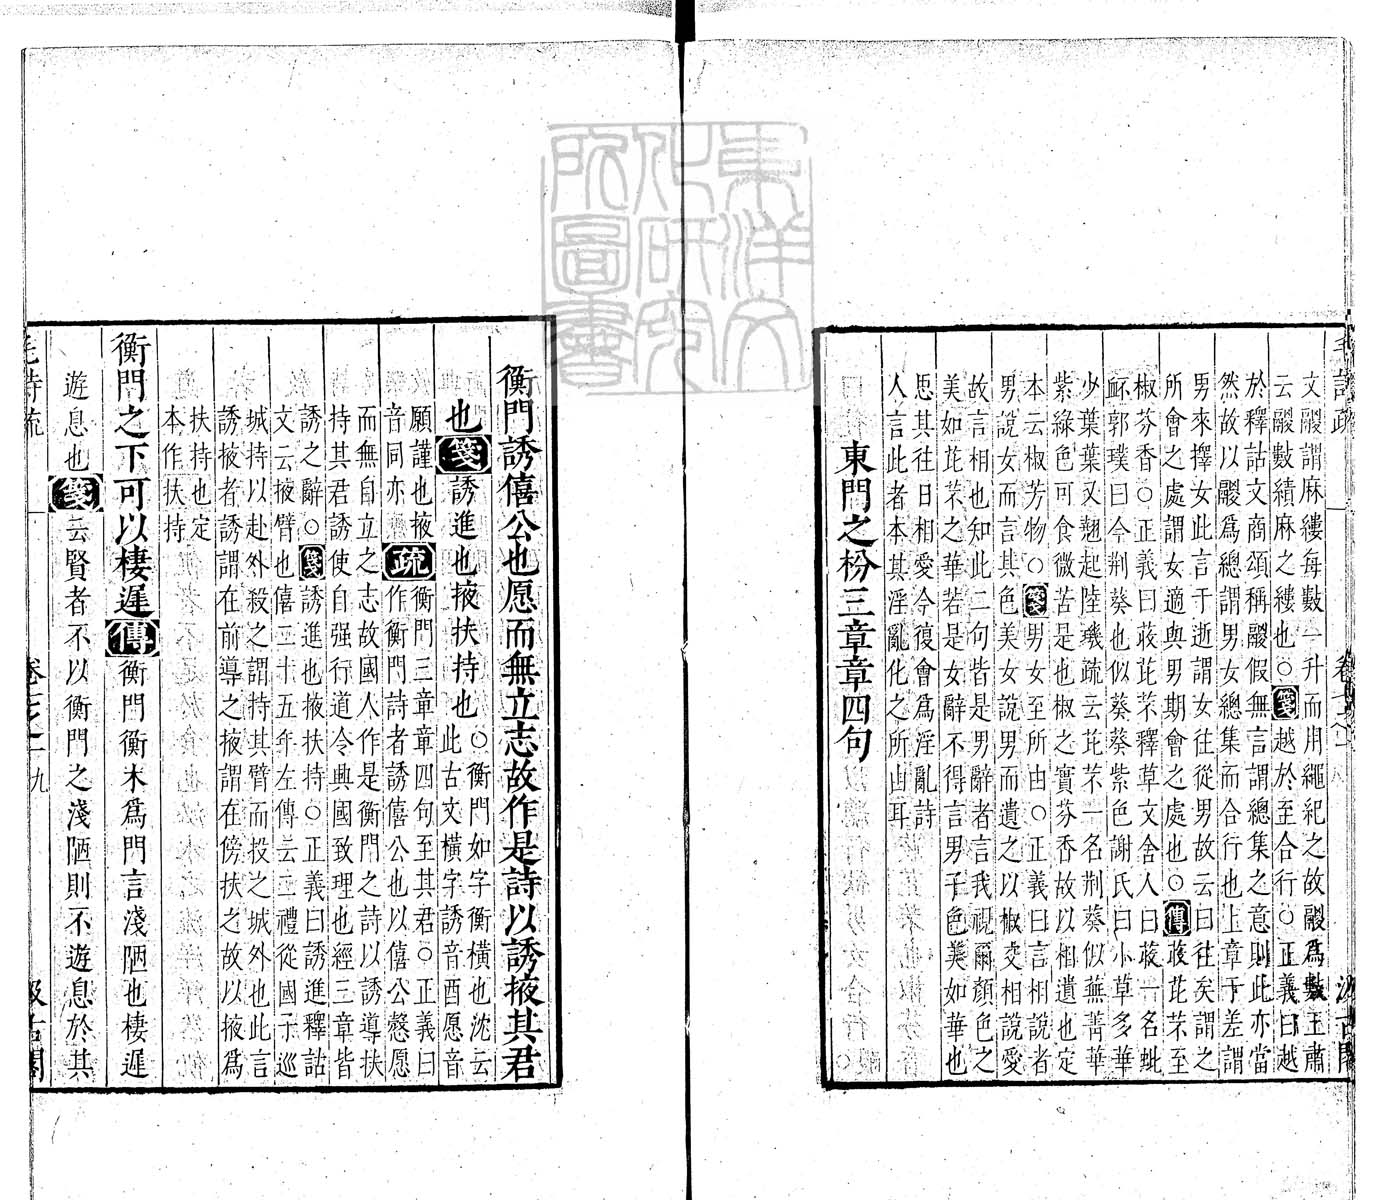 文鬷謂麻縷每數一升而用繩紀之故鬷爲數王肅
云鬷數績麻之縷也○箋越於至合行○正義曰越
於釋詁文商頌稱鬷假無言謂總集之意則此亦當
然故以鬷爲總謂男女總集而合行也上章于差謂
男來擇女此言于逝謂女往從男故云曰往矣謂之
所會之處謂女適與男期會之處也○傳荍芘芣至
椒芬香○正義曰荍芘芣釋草文舍人曰荍一名蚍
衃郭璞曰今荆葵也似葵紫色謝氏曰小草多華
少葉葉又翹起陸璣疏云芘芣一名荆葵似蕪菁華
紫綠色可食微苦是也椒之實芬香故以相遺也定
本云椒芳物○箋男女至所由○正義曰言相說者
男說女而言其色美女說男而遺之以椒交相說愛
故言相也知此二句皆是男辭者言我視爾顏色之
美如芘芣之華若是女辭不得言男子色美如華也
思其往日相愛今復會爲淫亂詩
人言此者本其淫亂化之所由耳
東門之枌三章章四句
衡門誘僖公也愿而無立志故作是詩以誘掖其君
也箋誘進也掖扶持也
○衡門如字衡橫也沈云
此古文橫字誘音酉愿音
願謹也掖
音同亦
疏
衡門三章章四句至其君○正義曰
作衡門詩者誘僖公也以僖公慤愿
而無自立之志故國人作是衡門之詩以誘導扶
持其君誘使自强行道令典國致理也經三章皆
誘之辭○箋誘進也掖扶持○正義曰誘進釋詁
文云掖臂也僖二十五年左傳云二禮從國子巡
城持以赴外殺之謂持其臂而投之城外也此言
誘掖者誘謂在前導之掖謂在傍扶之故以掖爲
扶持也定
本作扶持
衡門之下可以棲遲傳衡門衡木爲門言淺陋也棲遲
遊息也箋云賢者不以衡門之淺陋則不遊息於其
毛詩疏
卷七之一
九
汲古閣